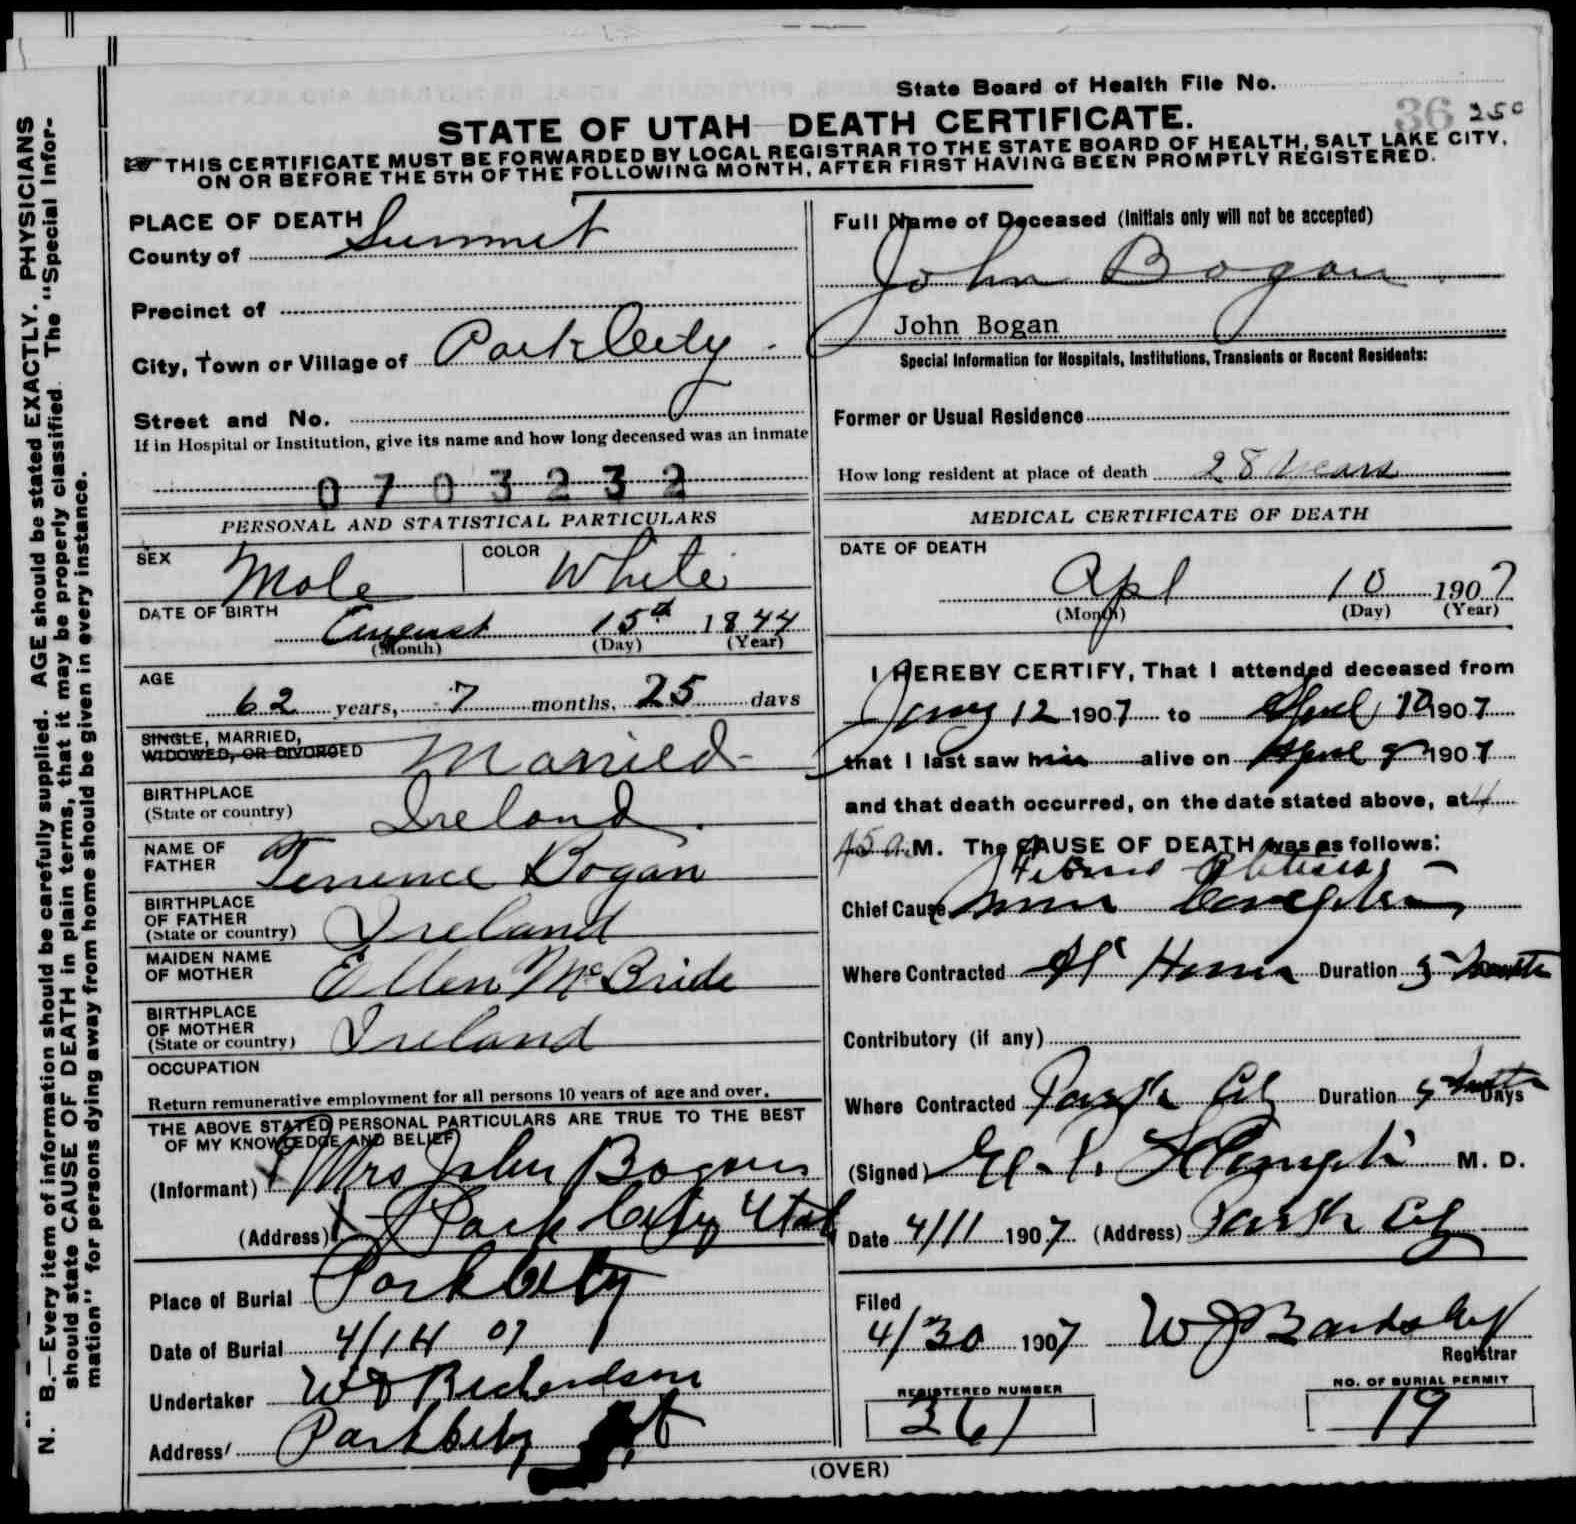 State Board of Health File No.
36 250
STATE OF UTAH DEATH CERTIFICATE.
THIS CERTIFICATE MUST BE FORWARDED BY LOCAL REGISTRAR TO THE STATE BOARD OF HEALTH, SALT LAKE CITY,
ON OR BEFORE THE 5TH OF THE FOLLOWING MONTH, AFTER FIRST HAVING BEEN PROMPTLY REGISTERED.
N. B.—Every item of information should be carefully supplied. AGE should be stated EXACTLY. PHYSICIANS
should state CAUSE OF DEATH in plain terms, that it may be properly classified. The "Special Infor-
mation" for persons dying away from home should be given in every instance.
PLACE OF DEATH
County of Summit
Precinct of
City, Town or Village of Park City
Street and No.
If in Hospital or Institution, give its name and how long deceased was an inmate
0703232
PERSONAL AND STATISTICAL PARTICULARS
SEX Male COLOR White
DATE OF BIRTH
August 15th 1844
(Month) (Day) (Year)
AGE
62 years, 7 months, 25 days
SINGLE, MARRIED,
WIDOWED, OR DIVORCED Married
BIRTHPLACE
(State or country) Ireland.
NAME OF
FATHER Terrence Bogan
BIRTHPLACE
OF FATHER
(State or country) Ireland
MAIDEN NAME
OF MOTHER Ellen McBride
BIRTHPLACE
OF MOTHER
(State or country) Ireland
OCCUPATION
Return remunerative employment for all persons 10 years of age and over.
THE ABOVE STATED PERSONAL PARTICULARS ARE TRUE TO THE BEST
OF MY KNOWLEDGE AND BELIEF
(Informant) Mrs John Bogan
(Address) Park City Utah
Place of Burial Park City
Date of Burial 4/14 07
Undertaker W J Richardson
Address Park City
Full Name of Deceased (Initials only will not be accepted)
John Bogan
John Bogan
Special Information for Hospitals, Institutions, Transients or Recent Residents:
Former or Usual Residence
How long resident at place of death 28 Years
MEDICAL CERTIFICATE OF DEATH
DATE OF DEATH
Apl 10 1907
(Month) (Day) (Year)
I HEREBY CERTIFY, That I attended deceased from
Jany 12 1907 to April 10 1907
that I last saw him alive on April 9 1907
and that death occurred, on the date stated above, at 4
45 a. M. The CAUSE OF DEATH was as follows:
Chief Cause
Where Contracted At Home Duration
Contributory (if any)
Where Contracted Park City Duration Days
(Signed) M. D.
Date 4/11 1907 (Address) Park City
Filed
4/30 1907 W J Bardsley
Registrar
REGISTERED NUMBER
361
NO. OF BURIAL PERMIT
19
(OVER)